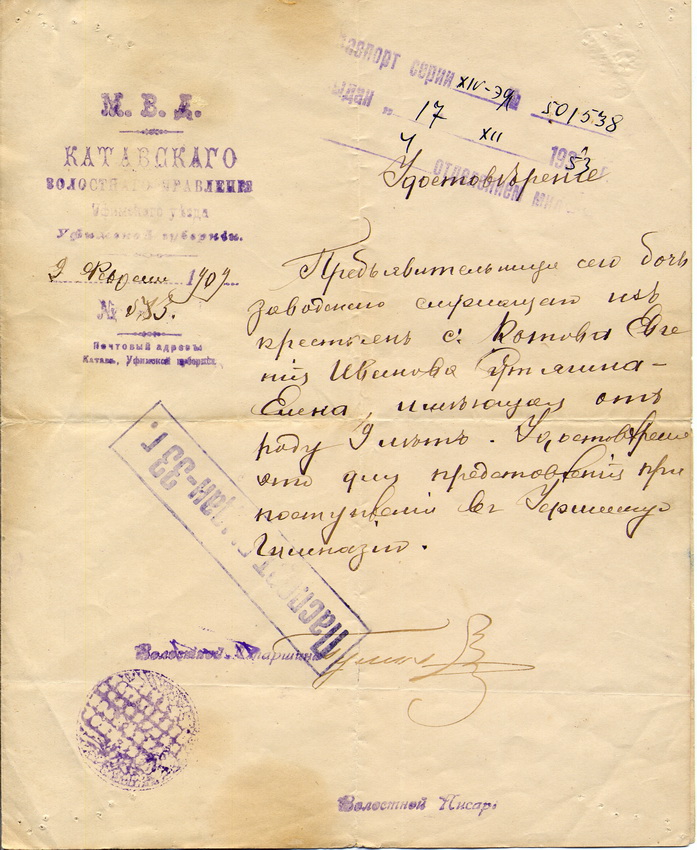 М. В. Д.
КАТАВСКАГО
ВОЛОСТНАГО ПРАВЛЕНІЯ
Уфимскаго уѣзда
Уфимской губерніи.
1909
№
Почтовый адресъ:
Катавъ, Уфимской губерніи.
паспорт серии XIV-ЭЯ № 501538
выдан " 17 XII 1953 г.
отделением мил
Удостовѣреніе
Предъявительница сего дочь
заводского служащаго изъ
крестьянъ с. Котова Евге
нія Иванова
Елена, имѣющая отъ
роду 9 лѣтъ. Удостовѣреніе
это для представленія при
поступленіи въ Уфимскую
Гимназію.
Паспорт выдан-33 г.
Волостной Старшина
Волостной Писарь